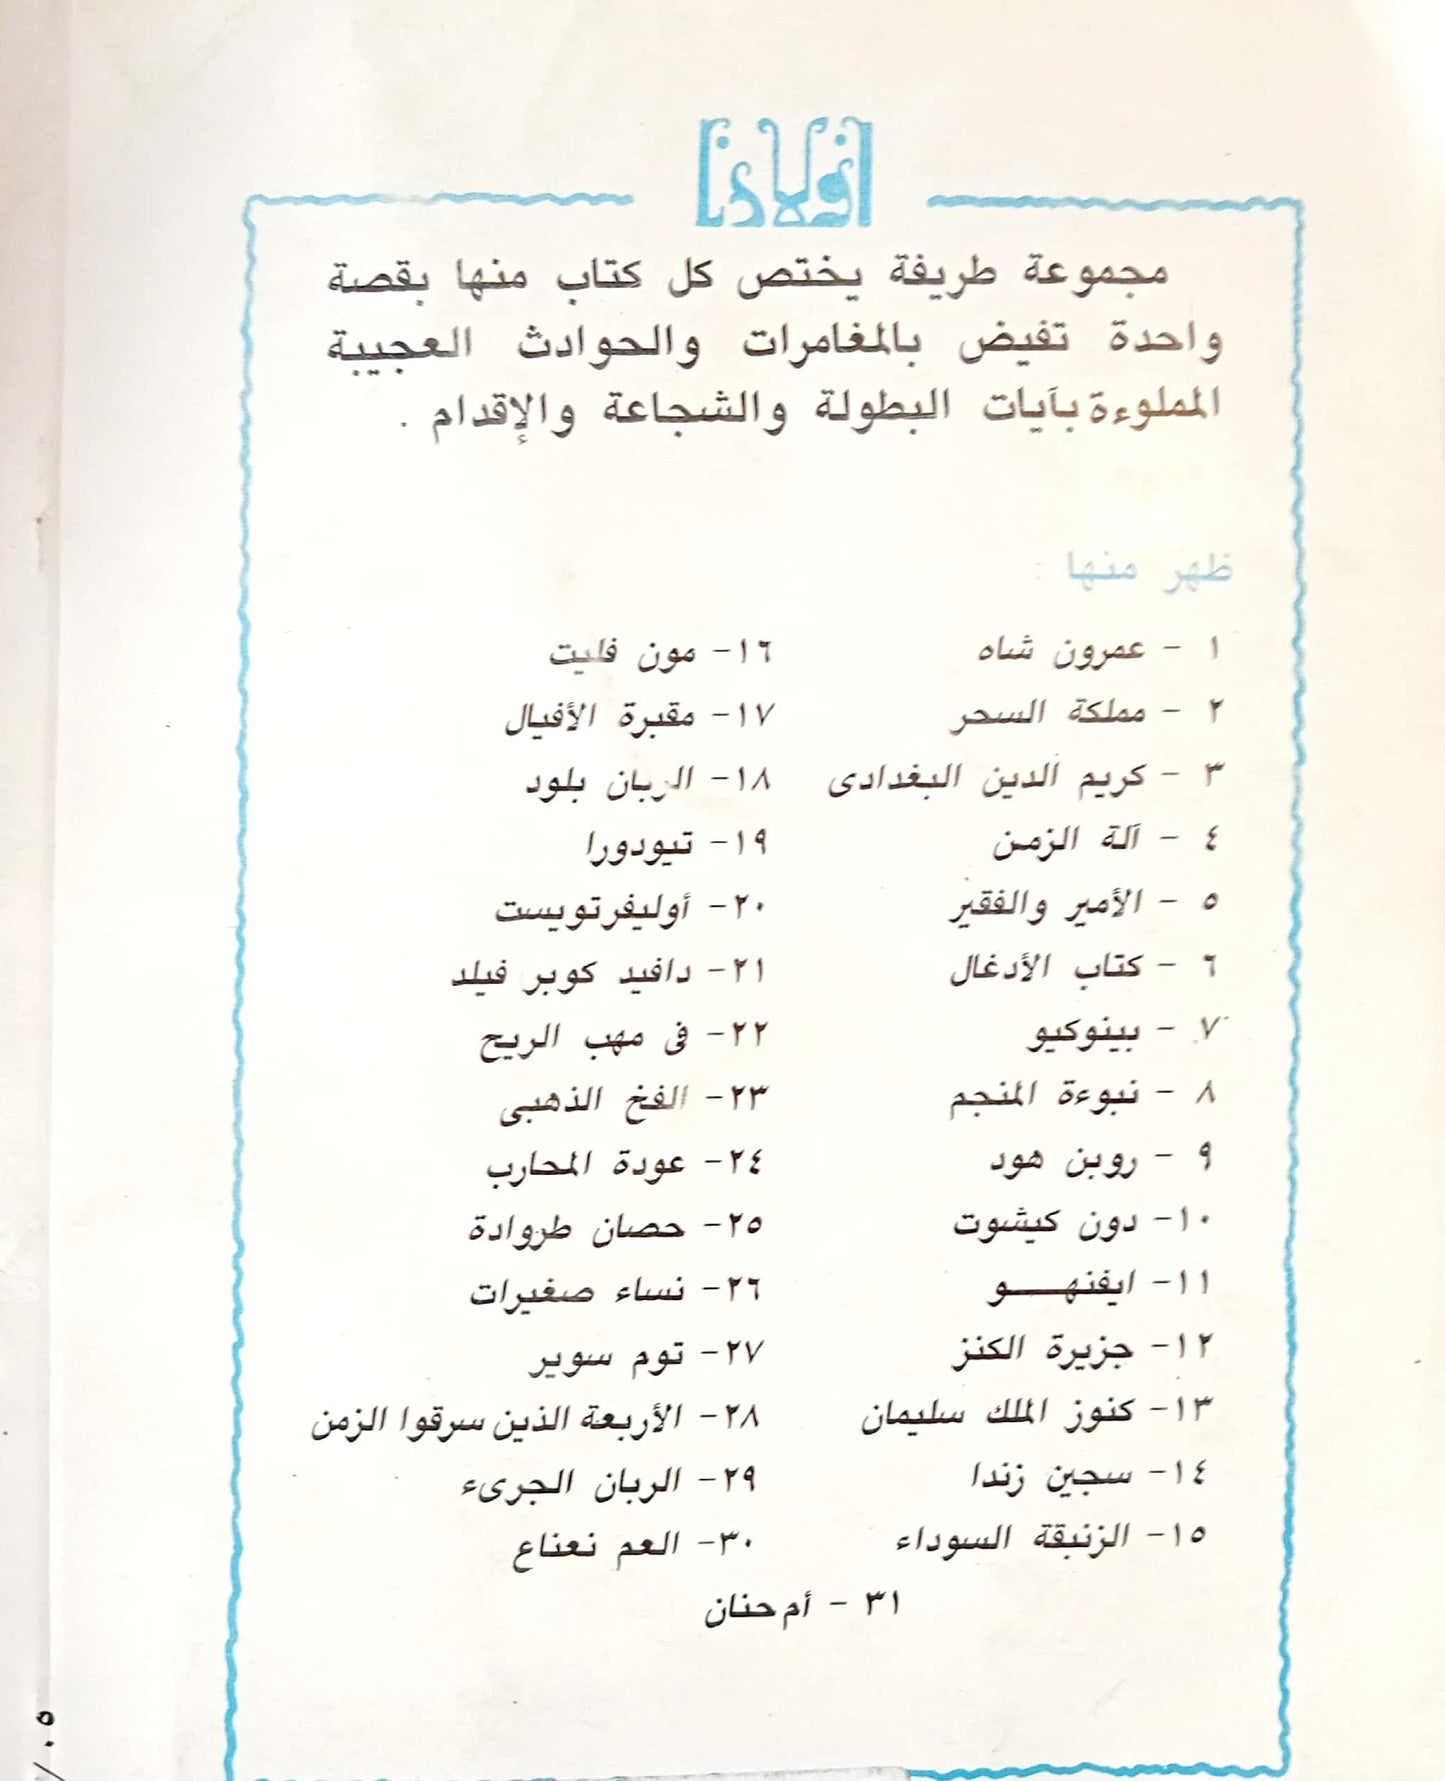 أولادنا
مجموعة طريفة يختص كل كتاب منها بقصة
واحدة تفيض بالمغامرات والحوادث العجيبة
المملوءة بآيات البطولة والشجاعة والإقدام .
ظهر منها :
١ - عمرون شاه
٢ - مملكة السحر
٣ - كريم الدين البغدادى
٤ - آلة الزمن
٥ - الأمير والفقير
٦ - كتاب الأدغال
٧ - بينوكيو
٨ - نبوءة المنجم
٩ - روبن هود
١٠ - دون كيشوت
١١ - ايفنهـــو
١٢ - جزيرة الكنز
١٣ - كنوز الملك سليمان
١٤ - سجين زندا
١٥ - الزنبقة السوداء
١٦ - مون فليت
١٧ - مقبرة الأفيال
١٨ - الربان بلود
١٩ - تيودورا
٢٠ - أوليفر تويست
٢١ - دافيد كوبر فيلد
٢٢ - فى مهب الريح
٢٣ - الفخ الذهبى
٢٤ - عودة المحارب
٢٥ - حصان طروادة
٢٦ - نساء صغيرات
٢٧ - توم سوير
٢٨ - الأربعة الذين سرقوا الزمن
٢٩ - الربان الجرىء
٣٠ - العم نعناع
٣١ - أم حنان